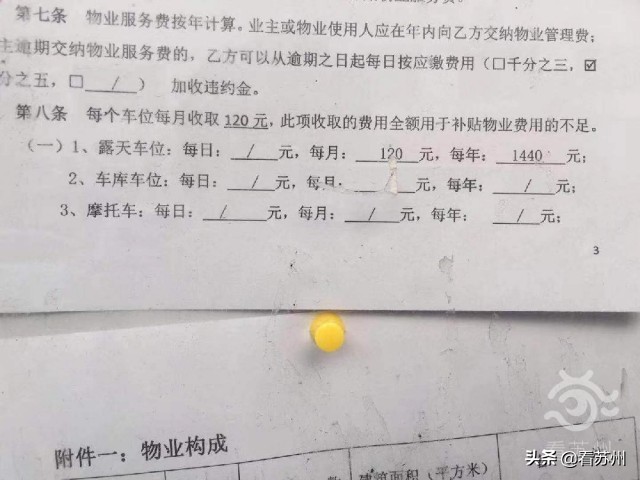 第七条 物业服务费按年计算。业主或物业使用人应在年内向乙方交纳物业管理费;
主逾期交纳物业服务费的,乙方可以从逾期之日起每日按应缴费用(□千分之三,☑
分之五,□ / ) 加收违约金。
第八条 每个车位每月收取 120 元,此项收取的费用全额用于补贴物业费用的不足。
(一)1、露天车位:每日: / 元,每月: 120 元,每年: 1440 元;
2、车库车位:每日: / 元,每月: / 元,每年: / 元;
3、摩托车:每日: / 元,每月: / 元,每年: / 元;
3
附件一:物业构成
建筑面积(平方米)
看苏州
头条 @看苏州